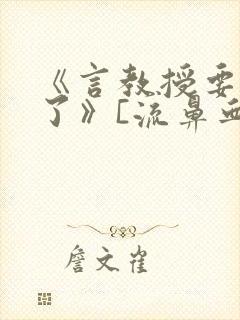 《言教授要
了》[流鼻血
詹文雀